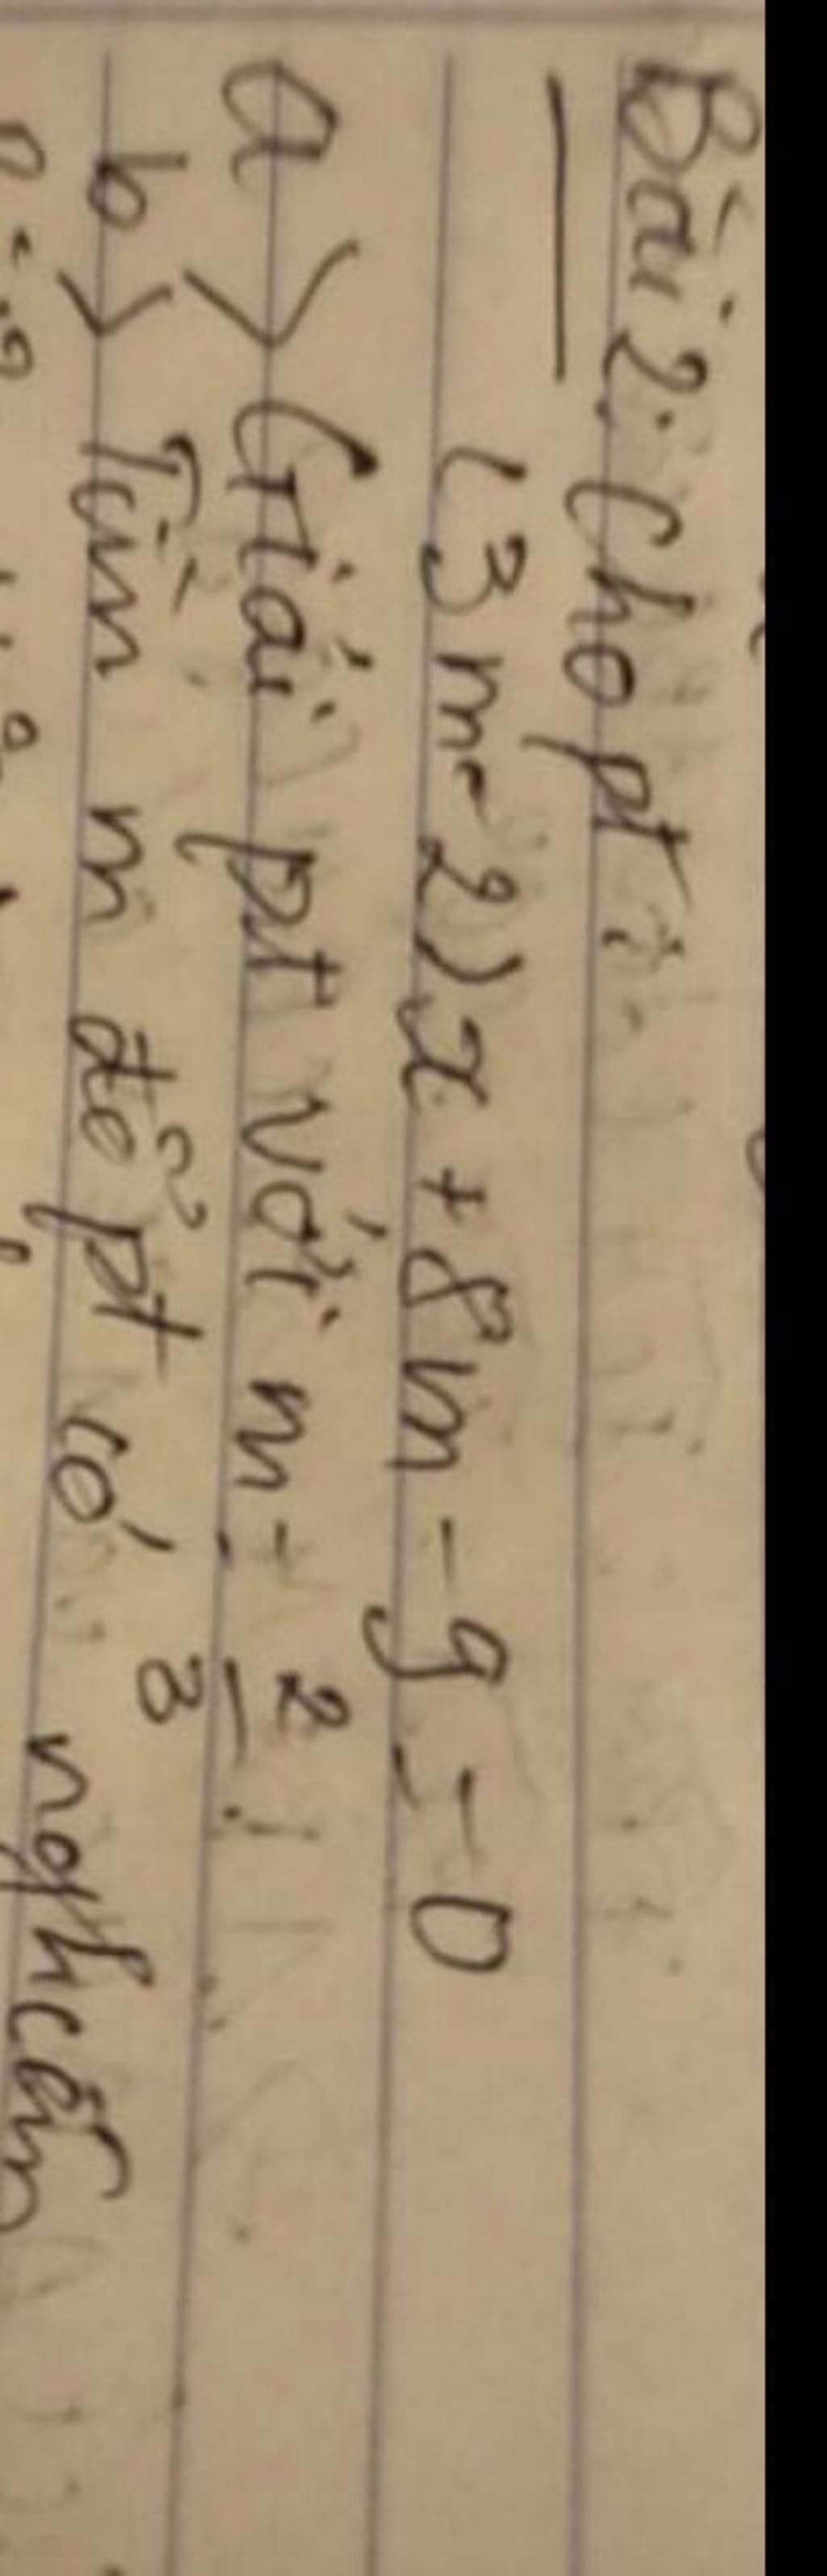 Bài 2: Cho pt:
(3m-2)x + 8m - 9 = 0
a> Giải pt với m = 2/3
b> Tìm m để pt có nghiệm